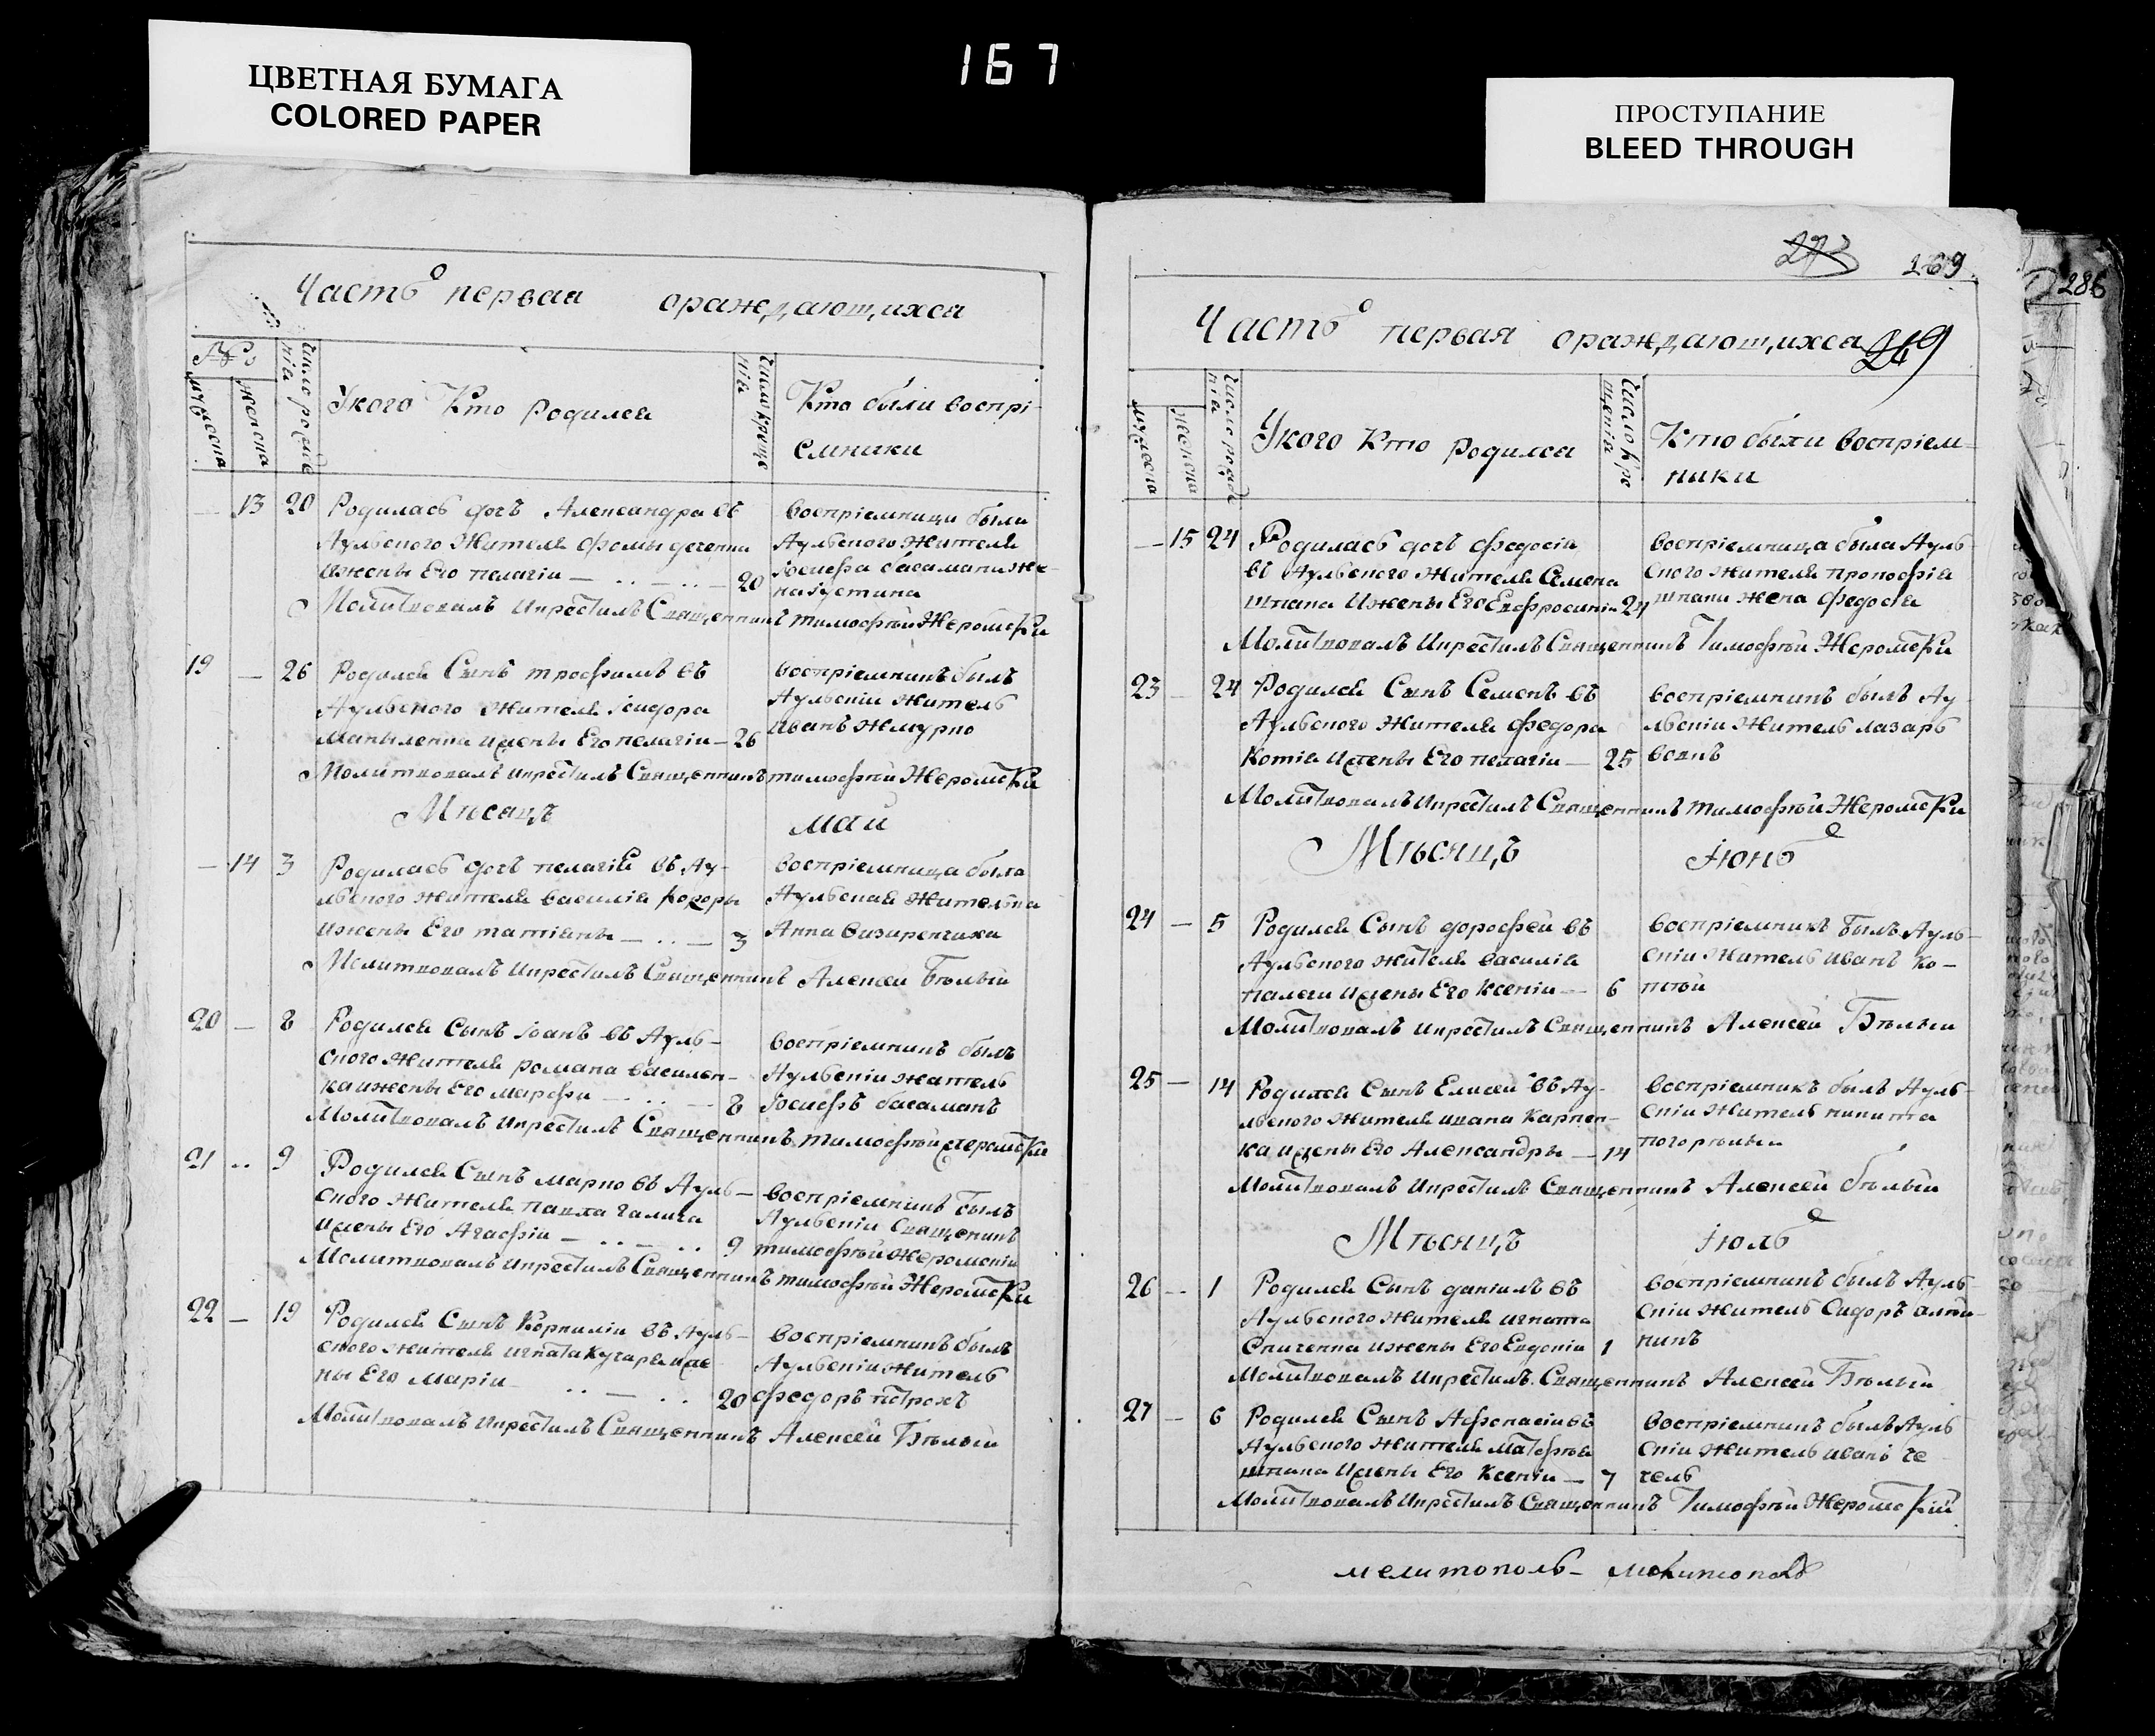 ЦВЕТНАЯ БУМАГА
COLORED PAPER
167
ПРОСТУПАНИЕ
BLEED THROUGH
Часть первая ораждающихса
№
мужеска
женска
Число рожде
нія
Укого Кто родилса
Число креще
нія
Кто были воспрі-
емники
13 20 Родилась дочь Александра въ
Аульского Жителя Фомы
Ижены Его пелагіи 20
воспріемници была
Аульского Жителя
Іосифа басамана же-
на Устина
Молитвовалъ икрестилъ Священникъ тимофѣй Жеромски
19 — 26 Родился Сынъ трофимъ въ
Аульского Жителя Ісидора
ижены Его пелагіи — 26
воспріемникъ былъ
Аульскіи житель
Иванъ Жмурко
Молитвовалъ икрестилъ Священникъ тимофѣй Жеромски
Мѣсяцъ маи
— 14 3 Родилась дочь пелагія въ Ау-
льского жителя василія
ижены Его татіаны — 3
воспріемница была
Аульская жителька
Анна
Молитвовалъ икрестилъ Священникъ Алексѣй Бѣлый
20 — 8 Родился Сынъ Іоанъ въ Ауль-
ского Жителя романа василен-
ка ижены Его марфи — 8
воспріемникъ былъ
Аульскіи житель
Іосифъ басаманъ
Молитвовалъ икрестилъ Священникъ тимофѣй жеромски
21 .. 9 Родился Сынъ марко въ Ауль-
ского Жителя павла галича
ижены Его Агафіи — 9
воспріемникъ былъ
Аульскіи Священикъ
тимофѣй Жеромскіи
Молитвовалъ икрестилъ Священникъ тимофѣй Жеромски
22 — 19 Родился Сынъ Корнилій въ Ауль-
ского жителя игната кучаря иже
ны Его маріи 20
воспріемникъ былъ
Аульскіи житель
федоръ петрохъ
Молитвовалъ икрестилъ Священникъ Алексѣй Бѣлый
273 169
286
Часть первая ораждающихса 269
мужеска
женска
Число рожде
нія
Укого Кто родилса
Число кре
щенія
Кто были воспріем-
ники
— 15 24 Родилась дочь федосія
въ Аульского жителя Семена
шпака Ижены Его Евфросиніи 24
воспріемница была Ауль-
ского жителя прокофія
шпаки жена федосія
Молитвовалъ икрестилъ Священникъ Тимофѣй Жеромски
23 — 24 Родился Сынъ Семенъ въ
Аульского жителя федора
Котія ижены Его пелагіи — 25
воспріемникъ былъ Ау-
льскіи житель лазарь
вовкъ
Молитвовалъ икрестилъ Священникъ тимофѣй Жеромски
Мѣсяцъ Іюнь
24 — 5 Родился Сынъ дорофей въ
Аульского жителя василія
ижены Его Ксеніи — 6
воспріемникъ былъ Ауль-
скіи житель иванъ ко-
Молитвовалъ икрестилъ Священникъ Алексѣй Бѣлый
25 — 14 Родился Сынъ Елисей въ Ау-
льского жителя ивана Карпен-
ка ижены Его Александры — 14
воспріемникъ былъ Ауль-
скіи житель никита
погорѣлый
Молитвовалъ икрестилъ Священникъ Алексѣй бѣлый
Мѣсяцъ Іюль
26 — 1 Родился Сынъ даніилъ въ
Аульского жителя игната
ижены Его Евдокіи 1
воспріемникъ былъ Ауль-
скіи житель Сидоръ
Молитвовалъ икрестилъ Священникъ Алексѣй Бѣлый
27 — 6 Родился Сынъ Афонасіи въ
Аульского жителя матфѣя
шпака ижены Его Ксеніи — 7
воспріемникъ былъ Ауль
скіи житель иванъ че
чель
Молитвовалъ икрестилъ Священникъ Тимофѣй Жеромскій
мелитополь — мелитополь